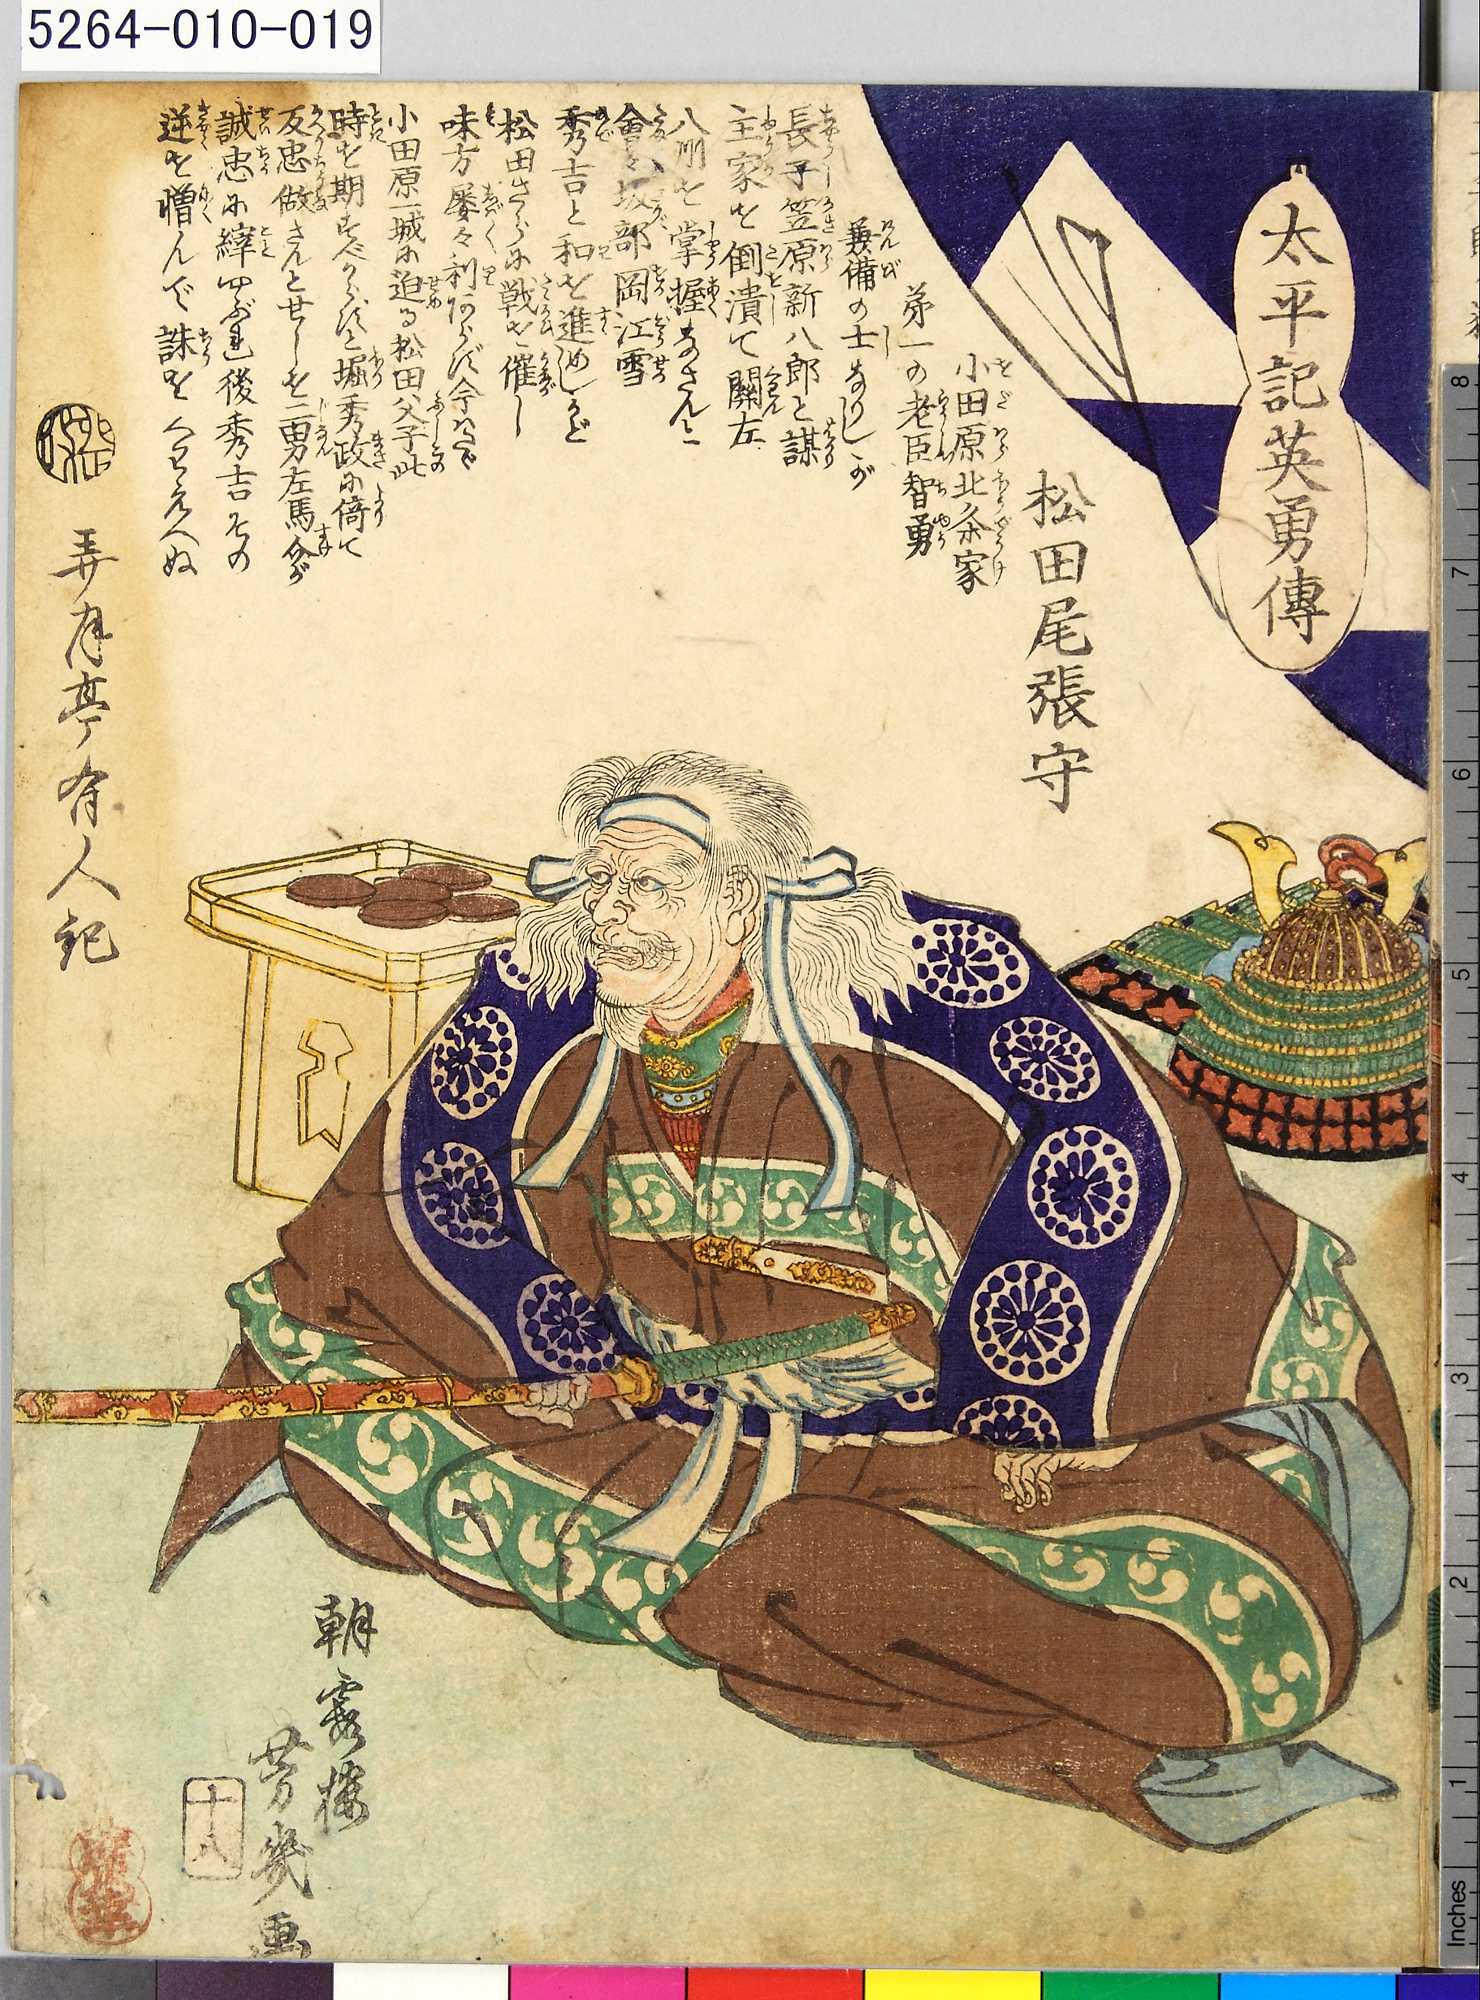 5264-010-019
太平記英勇傳
松田尾張守
小田原北条家
第一の老臣智勇
兼備の士なりしが
長子笠原新八郎と謀
主家を倒潰て關左
八州を掌握なさんと
會々坂部岡江雪
秀吉と和を進めしかど
松田さらに戦を催し
味方屡々利あらず今はや
小田原一城に迫る松田父子此
時を期すべからずと堀秀政に倚て
反忠做さんとせしを二男左馬介が
誠忠に縡やぶれ後秀吉その
逆を憎んで誅をくわえへぬ
弄月亭有人記
朝霞楼
芳幾画
十八
8
7
6
5
4
3
2
1
Inches